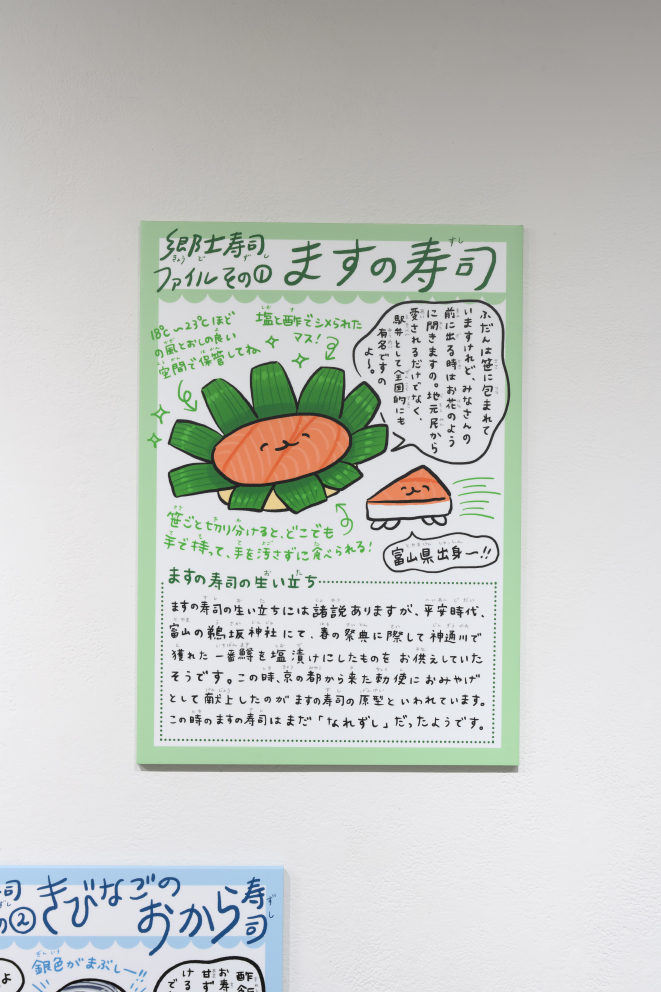 郷土寿司
ファイルその①
ますの寿司
18℃〜23℃ほど
の風とおしの良い
空間で保管してね
塩と酢でシメられた
マス！
ふだんは笹に包まれて
いますけれど、みなさんの
前に出る時はお花のよう
に開きますの。地元民から
愛されるだけでなく、
駅弁として全国的にも
有名ですの
よ〜。
笹ごと切り分けると、どこでも
手で持って、手を汚さずに食べられる！
富山県出身〜!!
ますの寿司の生い立ち
ますの寿司の生い立ちには諸説ありますが、平安時代、
富山の鵜坂神社にて、春の祭典に際して神通川で
獲れた一番鱒を塩漬けにしたものをお供えしていた
そうです。この時、京の都から来た勅使におみやげ
として献上したのがますの寿司の原型といわれています。
この時のますの寿司はまだ「なれずし」だったようです。
司
の②
きびなごの
おから
寿司
銀色がまぶしー!!
よ
酢飯
お寿
甘ず
ける
で